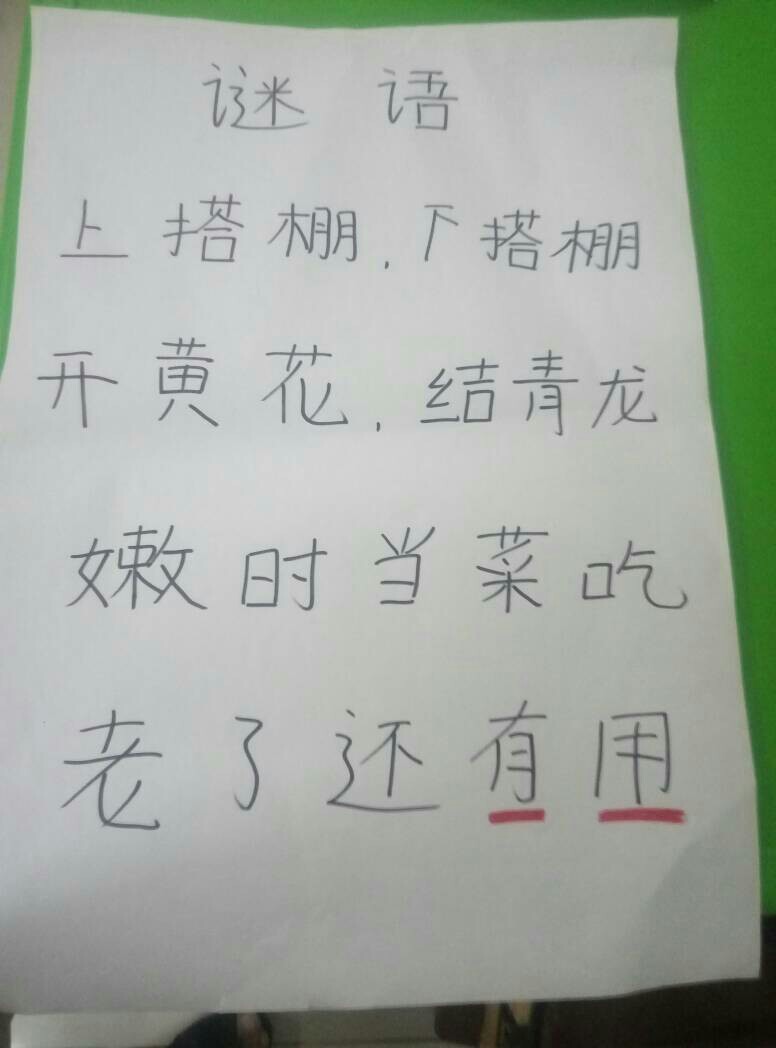 谜语
上搭棚,下搭棚
开黄花,结青龙
嫩时当菜吃
老了还有用